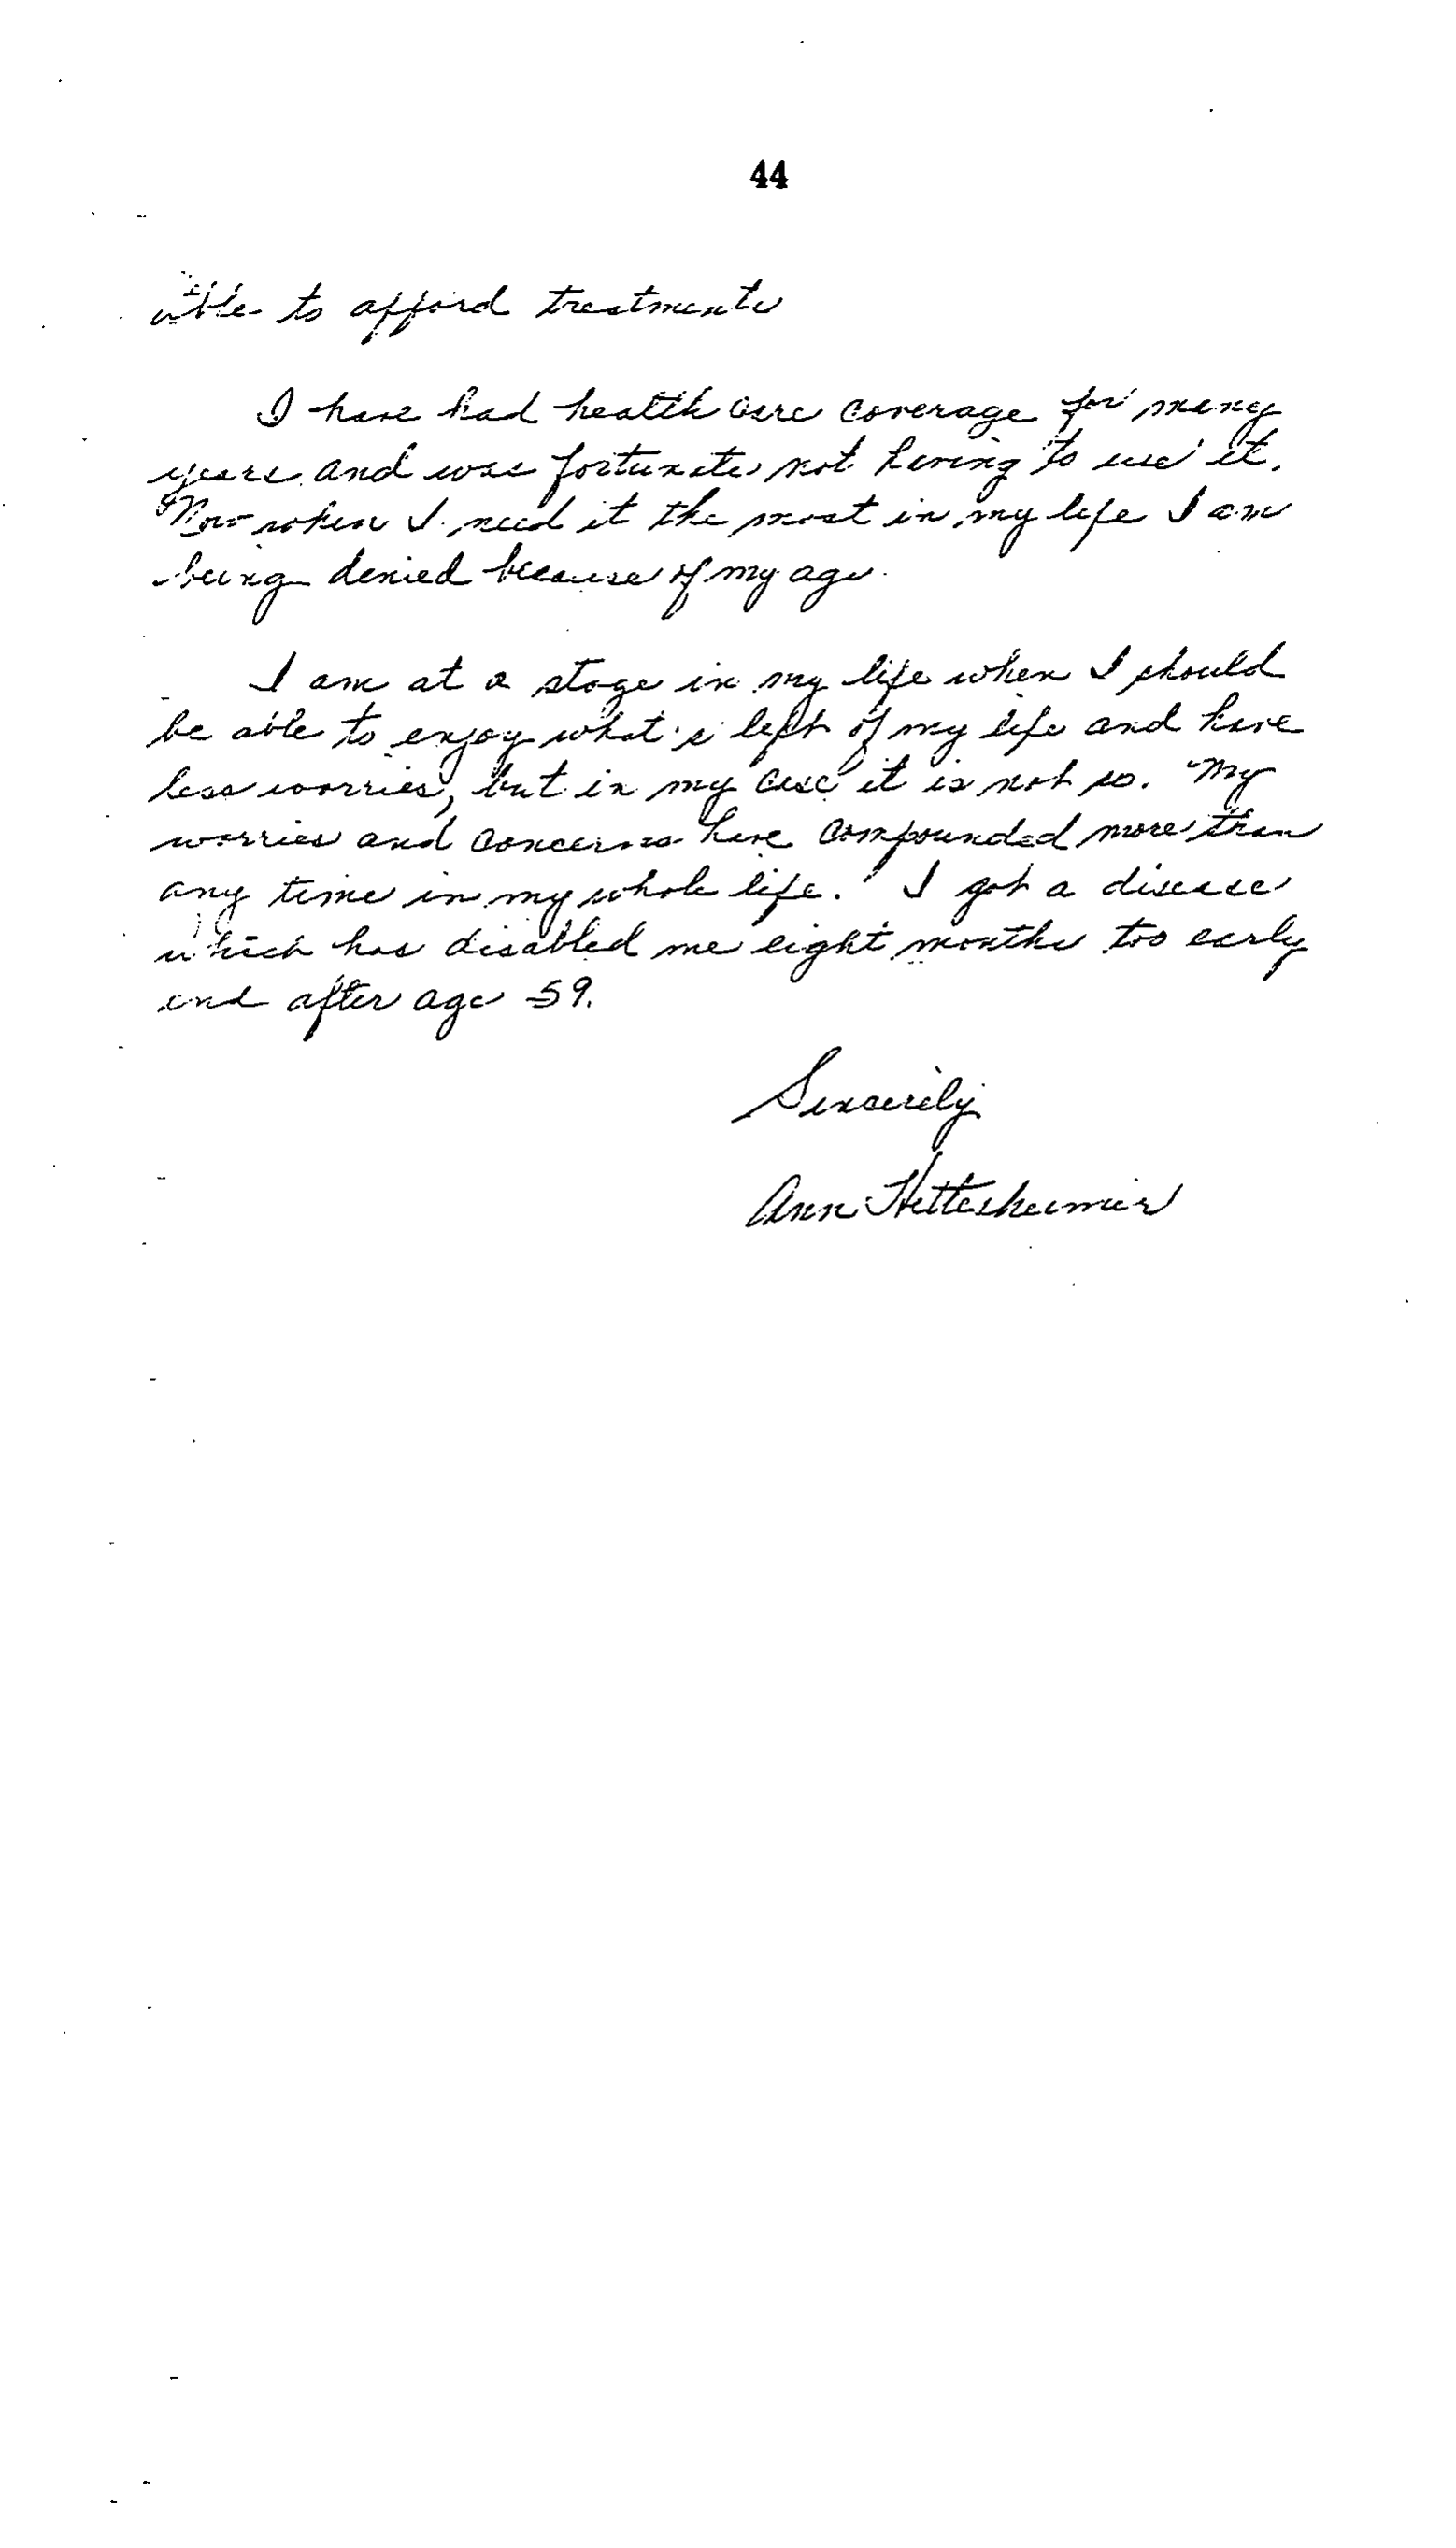 44
able to afford treatments
I have had health care coverage for many
years and was fortunate not having to use it.
Now when I need it the most in my life I am
being denied because of my age.
I am at a stage in my life when I should
be able to enjoy what's left of my life and have
less worries, but in my case it is not so. My
worries and concerns have compounded more than
any time in my whole life. I got a disease
which has disabled me eight months too early
and after age 59.
Sincerely
Ann Hettesheimer